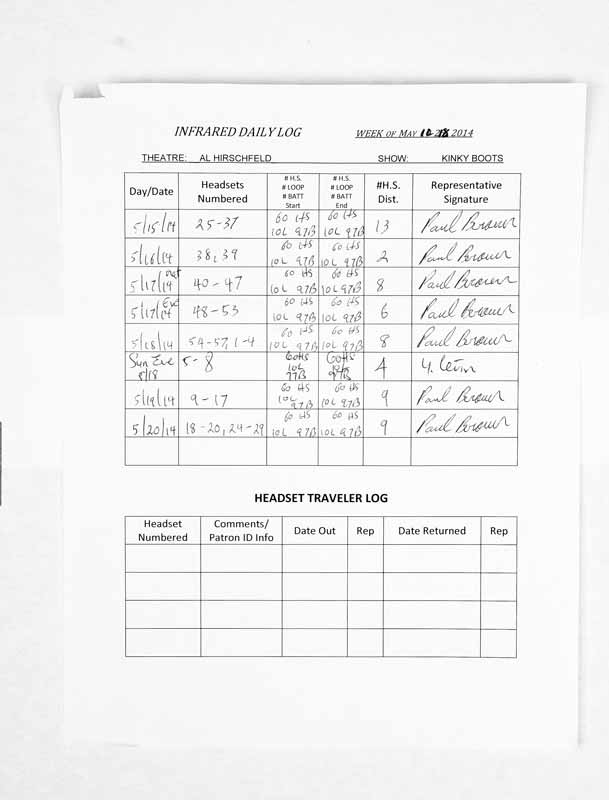 INFRARED DAILY LOG WEEK OF MAY 2014
THEATRE: AL HIRSCHFELD SHOW: KINKY BOOTS
Day/Date Headsets Numbered # H.S. # LOOP # BATT Start # H.S. # LOOP # BATT End #H.S. Dist. Representative Signature
5/15/14 25-37 60 HS 10L 97B 60 HS 10L 97B 13 Paul Brown
5/16/14 38,39 60 HS 10L 97B 60 HS 10L 97B 2 Paul Brown
5/17/14 mat 40-47 60 HS 10L 97B 60 HS 10L 97B 8 Paul Brown
5/17/14 Eve 48-53 60 HS 10L 97B 60 HS 10L 97B 6 Paul Brown
5/18/14 54-57,1-4 60 HS 10L 97B 60 HS 10L 97B 8 Paul Brown
Sun Eve 5/18 5-8 60HS 10L 97B 60HS 97B 4 Y. Levin
5/19/14 9-17 60 HS 10L 97B 60 HS 10L 97B 9 Paul Brown
5/20/14 18-20,24-29 60 HS 10L 97B 60 HS 10L 97B 9 Paul Brown
HEADSET TRAVELER LOG
Headset Numbered Comments/ Patron ID Info Date Out Rep Date Returned Rep